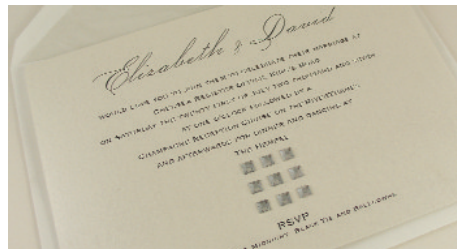 Elizabeth & David
WOULD LOVE YOU TO JOIN THEM TO CELEBRATE THEIR MARRIAGE AT
CHELSEA REGISTER OFFICE, KING'S ROAD
ON SATURDAY THE TWENTY FIRST OF JULY TWO THOUSAND AND
AT ONE O'CLOCK FOLLOWED BY A
CHAMPAGNE RECEPTION CRUISE ON THE
AND AFTERWARDS FOR DINNER AND DANCING AT
THE HEMPEL
RSVP
MIDNIGHT BLACK TIE AND BALLGOWNS